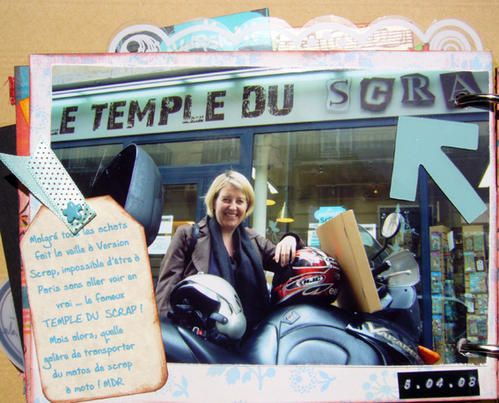 LE TEMPLE DU SCRA
Malgré tous les achats
fait la veille à Version
Scrap, impossible d'être à
Paris sans aller voir en
vrai ... le fameux
TEMPLE DU SCRAP !
Mais alors, quelle
galère de transporter
du matos de scrap
à moto ! MDR
8.04.08